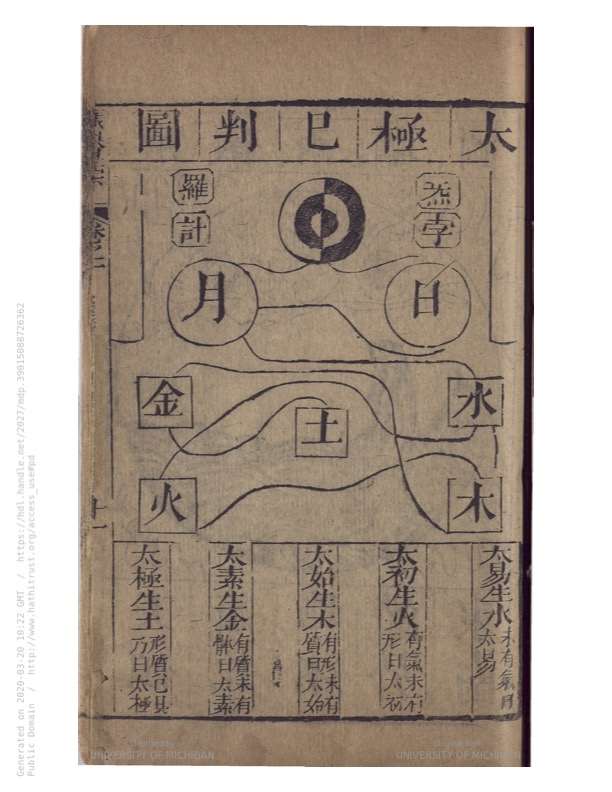 太極已判圖
炁
孛
羅
計
日
月
水
金
土
木
火
太易生水 未有氣曰太易
太初生火 有氣未有形曰太初
太始生木 有形未有質曰太始
太素生金 有質未有體曰太素
太極生土 形質已具乃曰太極
卷之二
十一
Generated on 2020-03-20 10:22 GMT / https://hdl.handle.net/2027/mdp.39015080726262
Public Domain / http://www.hathitrust.org/access_use#pd
UNIVERSITY OF MICHIGAN
UNIVERSITY OF MICHIGAN